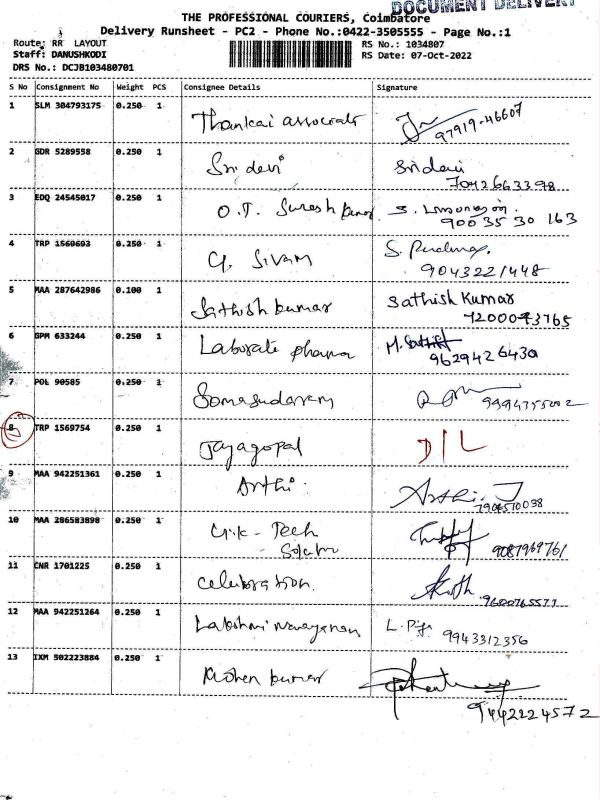 DOCUMENT DELIVERY
THE PROFESSIONAL COURIERS, Coimbatore
Delivery Runsheet - PC2 - Phone No.:0422-3505555 - Page No.:1
Route: RR LAYOUT RS No.: 1034807
Staff: DANUSHKODI RS Date: 07-Oct-2022
DRS No.: DCJB103480701
S No Consignment No Weight PCS Consignee Details Signature
1 SLM 304793175 0.250 1 Thankai associate
97919-46607
2 GDR 5289558 0.250 1 Sri devi Sri devi
7042663398
3 EDQ 24545017 0.250 1 O.T. Suresh kumar S.
900 35 30 163
4 TRP 1560693 0.250 1 G. Sivam S.
9043221448
5 MAA 287642986 0.100 1 Sathish kumar Sathish Kumar
7200073765
6 GPM 633244 0.250 1 Laborate pharma M. Sathish
9629426430
7 POL 90585 0.250 1 Somasundaram
9994355002
8 TRP 1569754 0.250 1 Jayagopal D/L
9 MAA 942251361 0.250 1 Arthi Arthi. J
7904510038
10 MAA 286583898 0.250 1 G.K - Tech
9087969761
11 CNR 1701225 0.250 1 Celebration
9600765577
12 MAA 942251264 0.250 1 Lakshmi narayanan L.
9943312356
13 IXM 502223884 0.250 1 Mohan kumar
9442224572